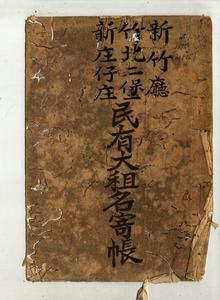 新竹廳
竹北二堡
新庄仔庄
民有大租名寄帳